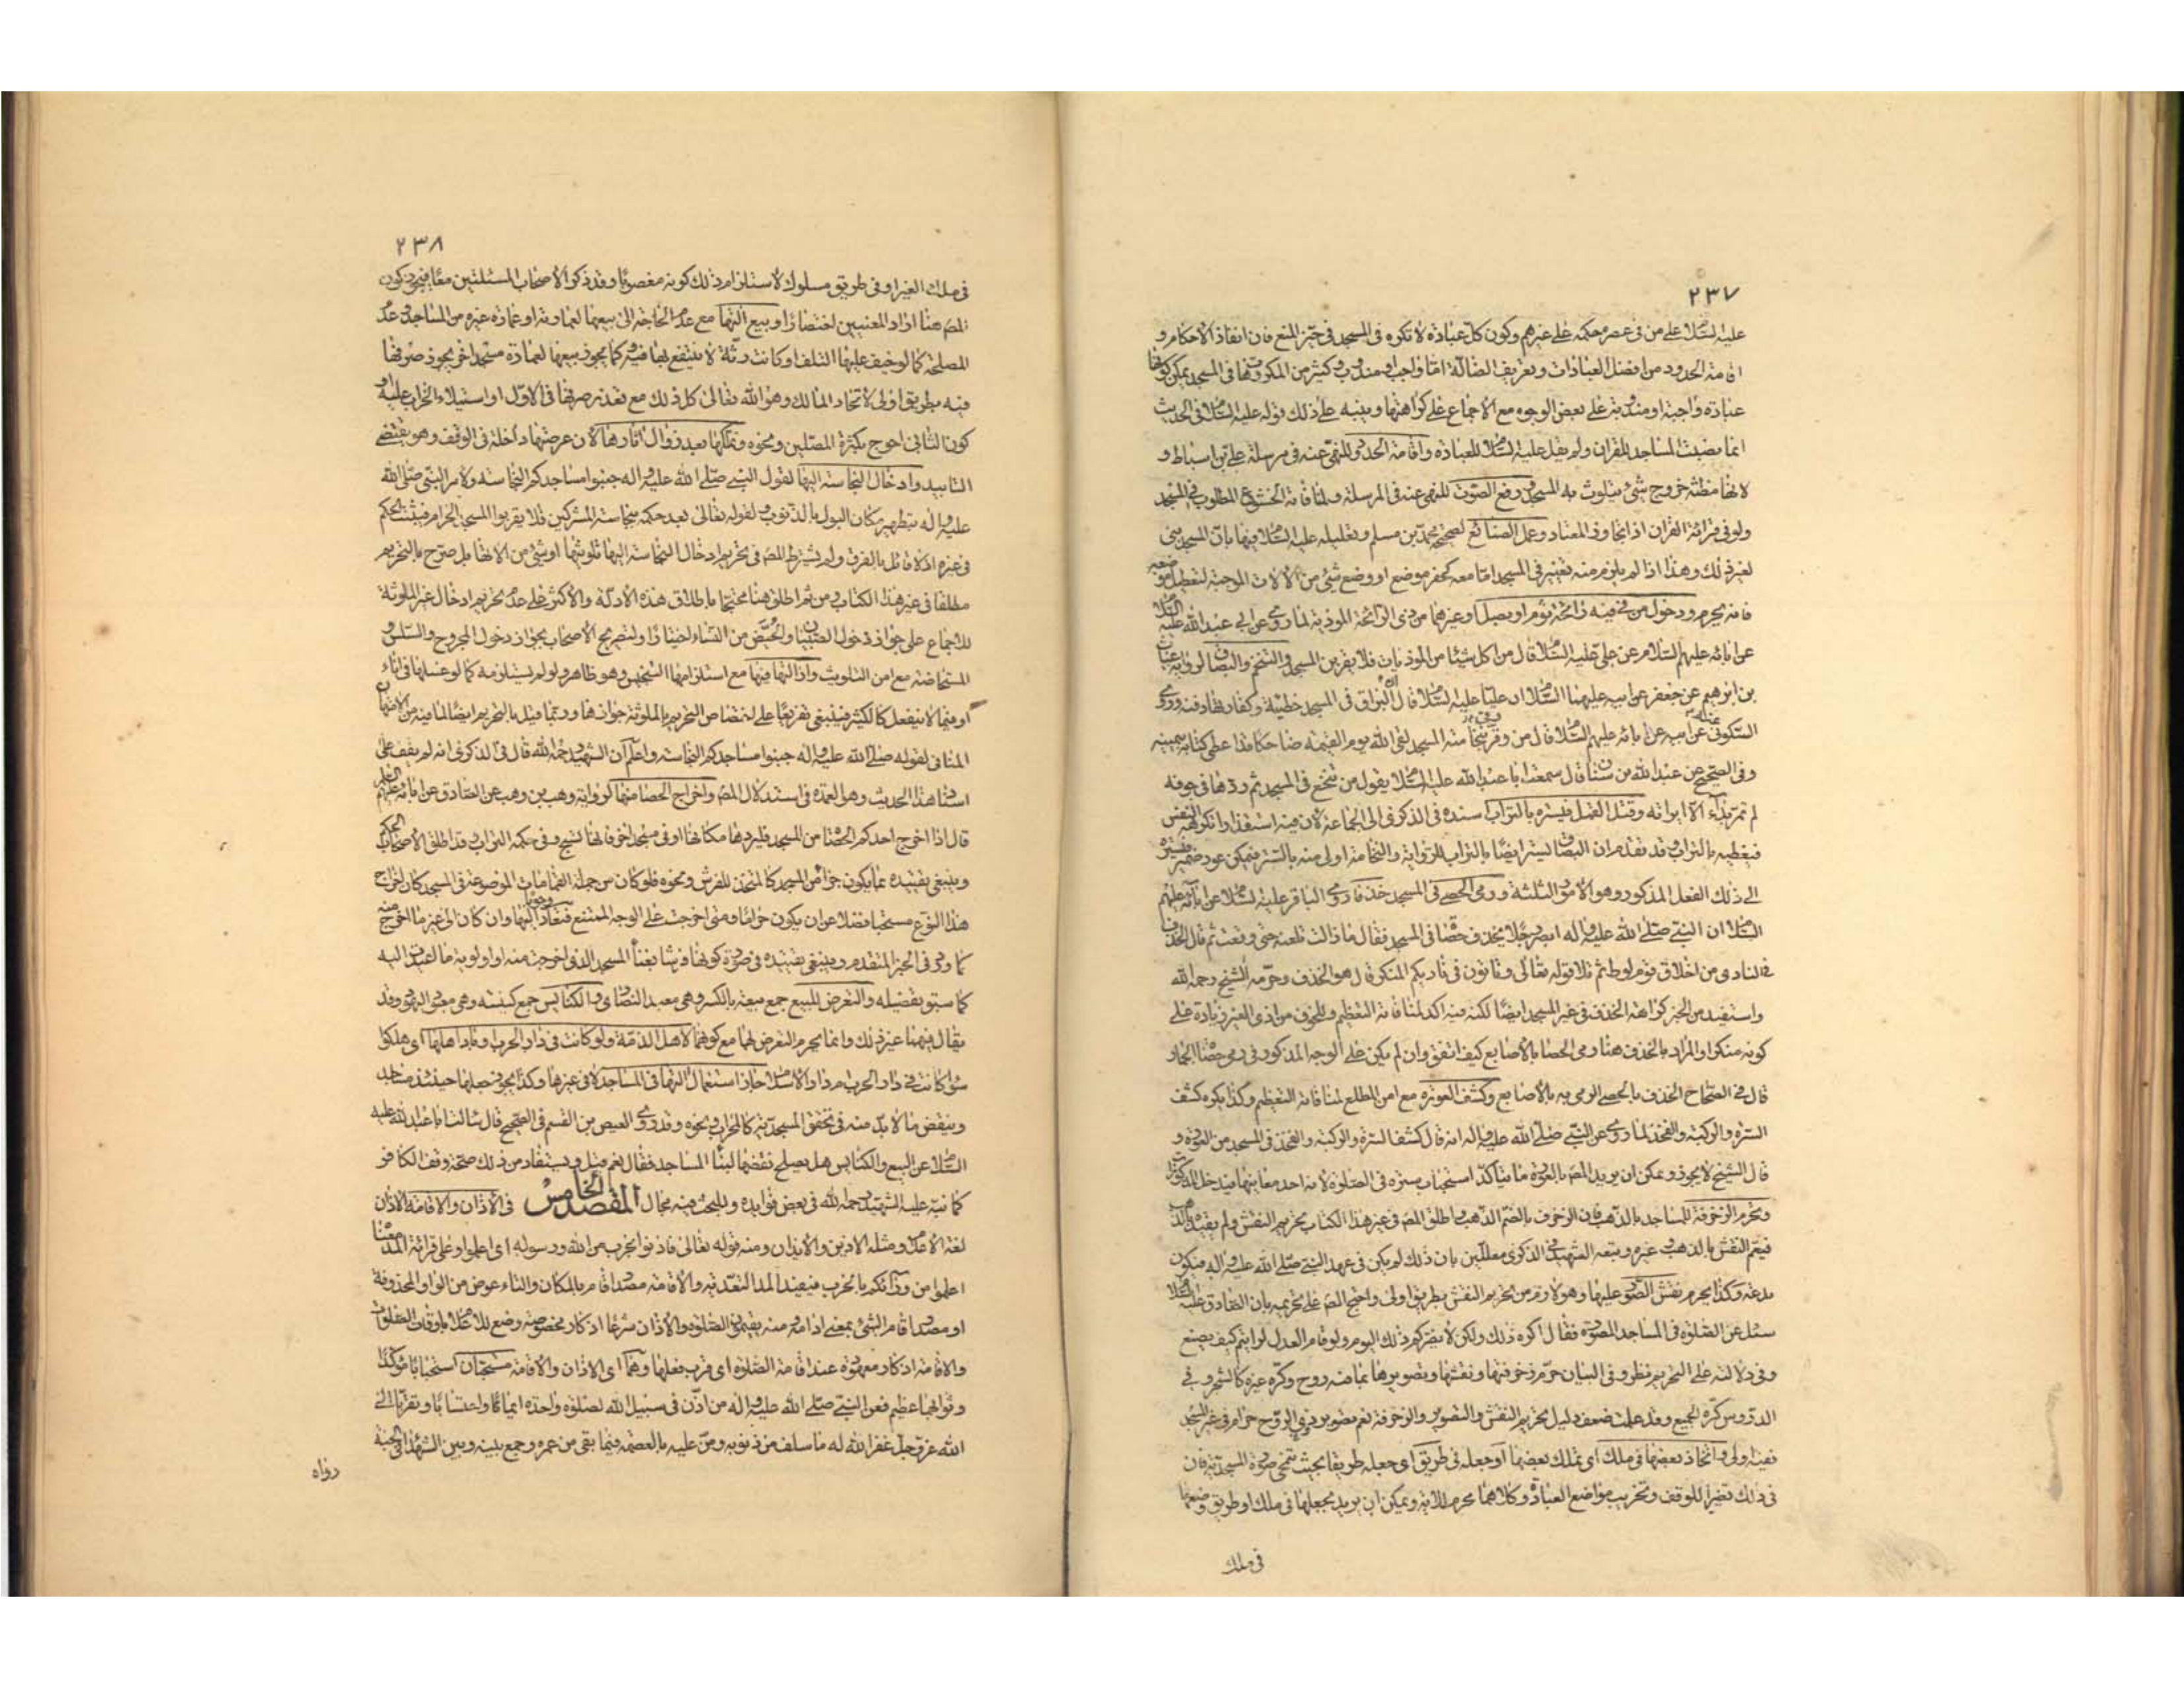 ٢٣٧
عليه السلام على من في عصره حكمه على غيرهم وكون كل عبادة لا تكره في المسجد في حيز المنع فان انفاذ الاحكام و
اقامة الحدود من افضل العبادات وتعريف الضالة اما واجب او مندوب وكثير من المكروهات في المسجد يمكن كونها
عبادة واجبة او مندوبة على بعض الوجوه مع الاجماع على كراهتها وينبه على ذلك قوله عليه السلام في الحديث
انما نصبت المساجد للقران ولم يقل عليه السلام للعبادة واقامة الحدود للنهي عنه في مرسلة علي بن اسباط و
لانها مظنة خروج شئ يتلوث به المسجد ورفع الصوت للنهي عنه في المرسلة ولمنافاته الخشوع المطلوب في المسجد
ولو في قرائة القران اذا تجاوز المعتاد وعمل الصنائع لصحيحة محمد بن مسلم وتعليله عليه السلام فيها بان المسجد بني
لغير ذلك وهذا اذا لم يلزم منه تغيير في المسجد اما معه كحفر موضع او وضع شئ من الالات الموجبة لتعطيل موضعه
فانه يحرم ودخول من في فيه رائحة ثوم او بصل او غيرهما من ذي الرائحة الموذية لما روي عن ابي عبد الله عليه السلام
عن ابائه عليهم السلام عن علي عليه السلام قال من اكل شيئا من الموذيات فلا يقربن المسجد والتنخم والبصاق لرواية غياث
بن ابرهيم عن جعفر عن ابيه عليهما السلام ان عليا عليه السلام قال البزاق في المسجد خطيئة وكفارتها دفنه وروى
السكوني عنه عن ابيه عن ابائه عليهم السلام قال من وقر بنخامته المسجد لقى الله يوم القيمة ضاحكا قد اعطى كتابه بيمينه
وفي الصحيح عن عبد الله بن سنان قال سمعت ابا عبد الله عليه السلام يقول من تنخع في المسجد ثم ردها في جوفه
لم تمر بداء الا ابرأته وقتل القمل فيستره بالتراب اسنده في الذكرى الى الجماعة لان فيه استقذارا تكرهه النفس
فيغطيه بالتراب وقد تقدم ان البصاق يستر ايضا بالتراب للرواية والنخامة اولى منه بالستر فيمكن عود ضمير فيستره
الى ذلك الفعل المذكور وهو الامور الثلثة ورمي الحصى في المسجد خذفا روى الباقر عليه السلام عن ابائه عليهم
السلام ان النبي صلى الله عليه واله ابصر رجلا يخذف حصاة في المسجد فقال ما زالت تلعنه حتى وقعت ثم قال الخذف
في النادي من اخلاق قوم لوط ثم تلا قوله تعالى وتاتون في ناديكم المنكر قال هو الخذف وحرمه الشيخ رحمه الله
واستفيد من الخبر كراهة الخذف في غير المسجد ايضا لكنه فيه اكد لمنافاته التعظيم وللخوف من اذى الغير زيادة على
كونه منكرا والمراد بالخذف هنا رمي الحصا بالاصابع كيف اتفق وان لم يكن على الوجه المذكور في رمي حصى الجمار
قال في الصحاح الخذف بالحصى الرمي به بالاصابع وكشف العورة مع امن المطلع لمنافاته التعظيم وكذا يكره كشف
السرة والركبة والفخذ لما روي عن النبي صلى الله عليه واله انه قال كشف السرة والركبة والفخذ في المسجد من العورة و
قال الشيخ لا يجوز ويمكن ان يريد المص بالعورة ما يتأكد استحباب ستره في الصلوة لانه احد معانيها فيدخل المذكورات
وتحرم الزخرفة للمساجد بالذهب فان الزخرف بالضم الذهب واطلق المص في غير هذا الكتاب تحريم النقش ولم يقيده بالذهب
فيعم النقش بالذهب وغيره وتبعه الشهيد في الذكرى معللين بان ذلك لم يكن في عهد النبي صلى الله عليه واله فيكون
بدعة وكذا يحرم نقش الصور عليها وهو لازم من تحريم النقش بطريق اولى واحتج المص على تحريمه بان الصادق عليه السلام
سئل عن الصلوة في المساجد المصورة فقال اكره ذلك ولكن لا يضركم ذلك اليوم ولو قام العدل لرايتم كيف يصنع
وفي دلالته على التحريم نظر وفي البيان حرم زخرفتها ونقشها وتصويرها بما فيه روح وكره غيره كالشجر وفي
الدروس كره الجميع وقد علمت ضعف دليل تحريم النقش والتصوير والزخرفة نعم تصوير ذي الروح حرام في غير المسجد
ففيه اولى واتخاذ بعضها في ملك اي تملك بعضها او جعله في طريق اي جعله طريقا بحيث تنمحي صورة المسجدية فان
في ذلك تغييرا للوقف وتخريب مواضع العبادة وكلاهما محرم للاية ويمكن ان يريد بجعلها في ملك او طريق وضعها
في ملك
٢٣٨
في ملك الغير او في طريق مسلوك لاستلزام ذلك كونه مغصوبا وقد ذكر الاصحاب المسئلتين معا فيجوز كون
المص هنا اراد المعنيين اختصارا وبيع التها مع عدم الحاجة الى بيعها لعمارته او عمارة غيره من المساجد وعدم
المصلحة كما لو خيف عليها التلف او كانت رثة لا ينتفع بها فيه وكما يجوز بيعها لعمارة مسجد اخر يجوز صرفها
فيه بطريق اولى لاتحاد المالك وهو الله تعالى كل ذلك مع تعذر صرفها في الاول او استيلاء الخراب عليه او
كون الثاني احوج بكثرة المصلين ونحوه وتملكها بعد زوال اثارها لان عرصتها داخلة في الوقف وهو يقتضي
التابيد وادخال النجاسة اليها لقول النبي صلى الله عليه واله جنبوا مساجدكم النجاسة ولامر النبي صلى الله
عليه واله بتطهير مكان البول بالذنوب ولقوله تعالى بعد حكمه بنجاسة المشركين فلا يقربوا المسجد الحرام فيثبت الحكم
في غيره اذ لا قائل بالفرق ولم يشترط المص في تحريم ادخال النجاسة اليها تلويثها او شئ من الاتها بل صرح بالتحريم
مطلقا في غير هذا الكتاب ومن ثم اطلق هنا محتجا باطلاق هذه الادلة والاكثر على عدم تحريم ادخال غير الملوثة
للاجماع على جواز دخول الصبيان والحيض من النساء اختيارا ولتصريح الاصحاب بجواز دخول المجروح والسلس و
المستحاضة مع امن التلويث وازالتها فيها مع استلزامها التنجيس وهو ظاهر ولو لم يستلزمه كما لو غسلها في اناء
او فيما لا ينفعل كالكثير فينبغي تفريعا على اختصاص التحريم بالملوثة جوازها وربما قيل بالتحريم ايضا لما فيه من الامتهان
المنافي لقوله صلى الله عليه واله جنبوا مساجدكم النجاسة واعلم ان الشهيد رحمه الله قال في الذكرى انه لم يقف على
اسناد هذا الحديث وهو العمدة في استدلال المص واخراج الحصا منها لرواية وهب بن وهب عن الصادق عن ابائه عليهم السلام
قال اذا اخرج احدكم الحصاة من المسجد فليردها مكانها او في مسجد اخر فانها تسبح وفي حكمه التراب وقد اطلق الاصحاب الحكم
وينبغي تقييده بما يكون جزأ من المسجد كالمتخذ للفرش ونحوه فلو كان من جملة القمامات الموضوعة في المسجد كان اخراج
هذا النوع مستحبا فضلا عن ان يكون حراما ومتى اخرجت على الوجه الممتنع فتعاد وجوبا اليها وان كان الى غير ما اخرج منه
كما ورد في الخبر المتقدم وينبغي تقييده في صورة كونها فرشا بغنأ المسجد الذي اخرجت منه او اولوية ما اعيدت اليه
كما سبق تفصيله والتعرض للبيع جمع بيعة بالكسر وهي معبد النصارى والكنايس جمع كنيسة وهي معبد اليهود وقد
يقال فيهما غير ذلك وانما يحرم التعرض لهما مع كونهما لاهل الذمة ولو كانت في دار الحرب وباد اهلها اي هلكوا
سواء كانت في دار الحرب ام دار الاسلام جاز استعمال التها في المساجد لا في غيرها وكذا يجوز جعلها حينئذ مساجد
وينقض ما لا بد منه في تحقق المسجدية كالمحراب ونحوه وقد روى العيص بن القسم في الصحيح قال سالت ابا عبد الله عليه
السلام عن البيع والكنايس هل يصلح نقضها لبناء المساجد فقال نعم قيل ويستفاد من ذلك صحة وقف الكافر
كما نبه عليه الشهيد رحمه الله في بعض فوايده وللبحث فيه مجال المقصد الخامس في الاذان والاقامة الاذان
لغة الاعلام ومثله الاذين والايذان ومنه قوله تعالى فاذنوا بحرب من الله ورسوله اي اعلموا وعلى قرائة المد معناه
اعلموا من ورائكم بالحرب فيفيد المد التعدية والاقامة مصدر اقام بالمكان والتاء عوض من الواو المحذوفة
او مصدر اقام الشئ بمعنى ادامه ومنه يقيمون الصلوة والاذان شرعا اذكار مخصوصة وضع للاعلام باوقات الصلوات
والاقامة اذكار معهودة عند اقامة الصلوة اي قرب فعلها وهما اي الاذان والاقامة مستحبان استحبابا مؤكدا
وثوابهما عظيم فعن النبي صلى الله عليه واله من اذن في سبيل الله لصلوة واحدة ايمانا واحتسابا وتقربا الى
الله عز وجل غفر الله له ما سلف من ذنوبه ومن عليه بالعصمة فيما بقى من عمره وجمع بينه وبين الشهداء في الجنة
رواه